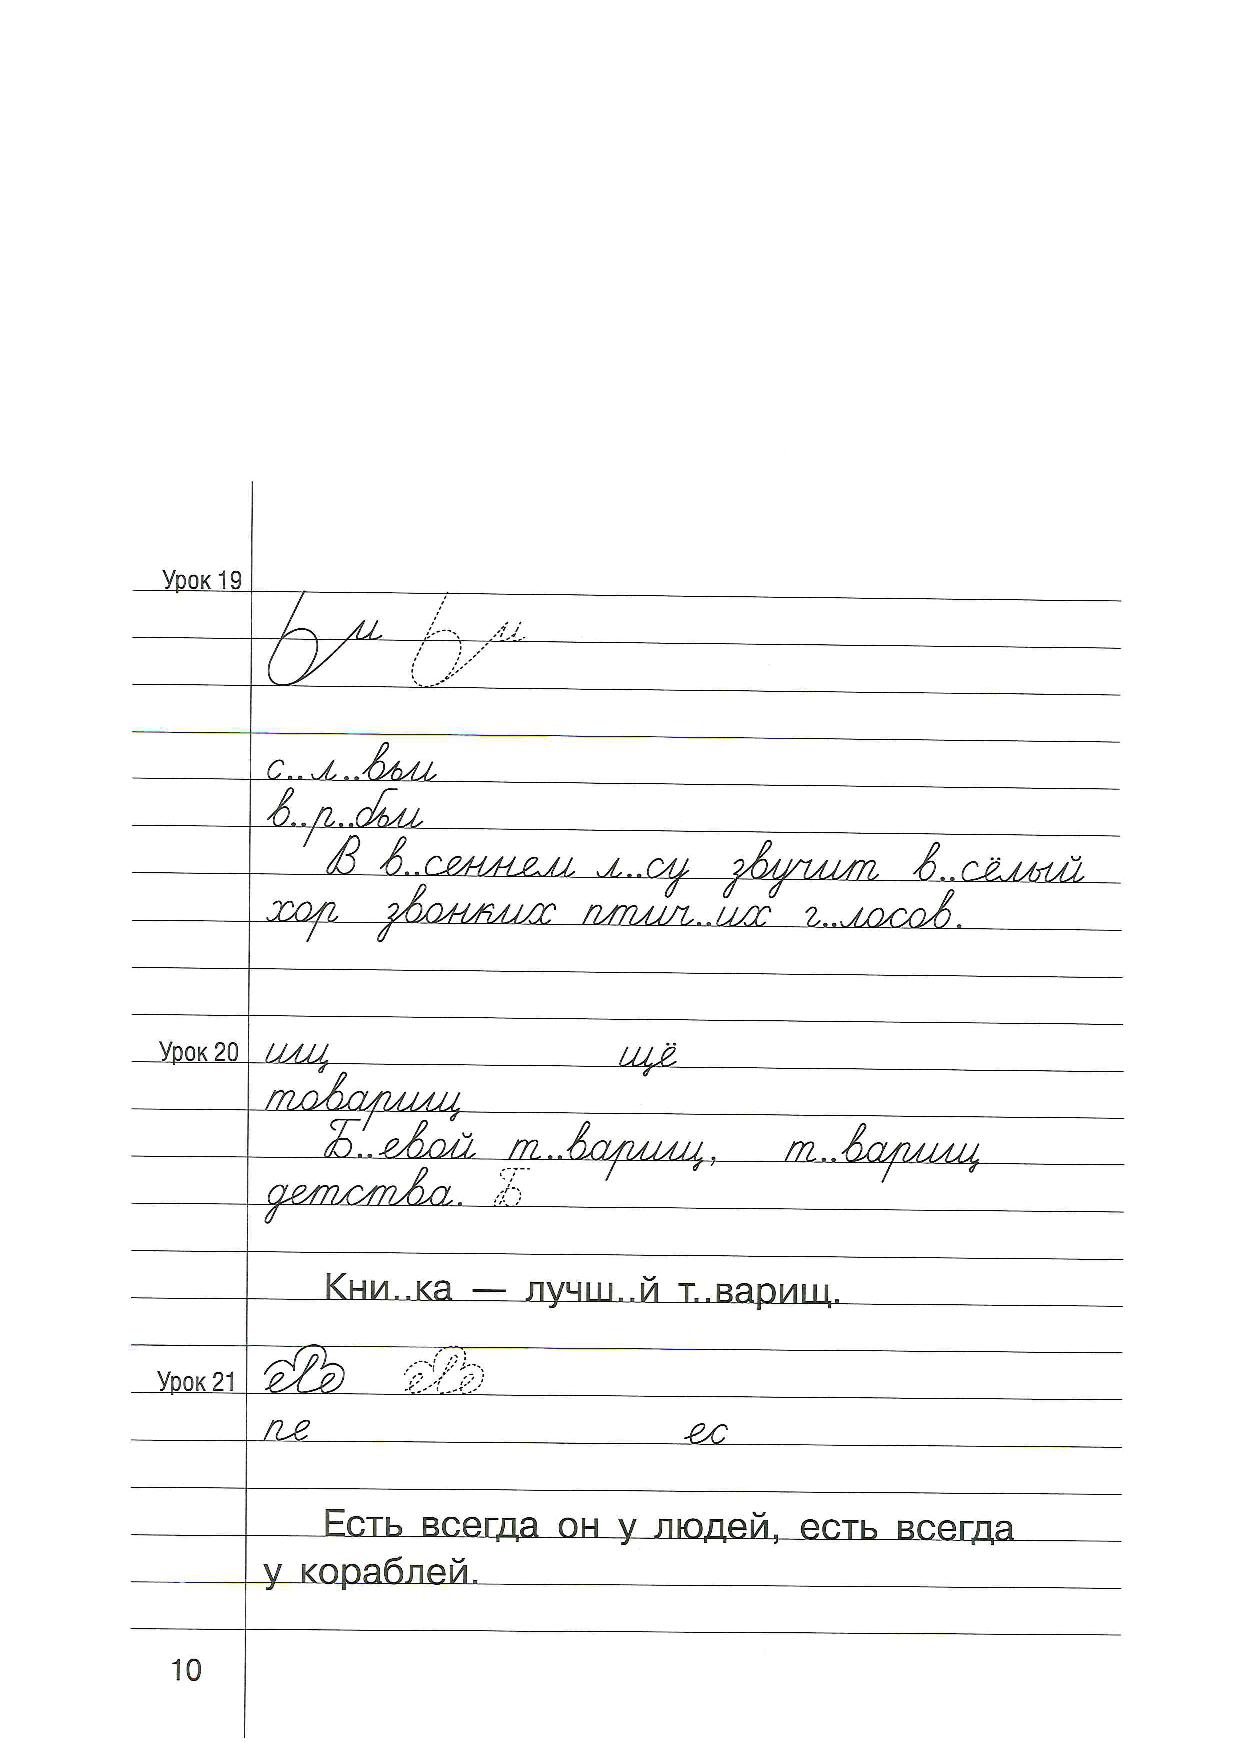 Урок 19
ьи ьи
с..л..вьи
в..р..бьи
В в..сеннем л..су звучит в..сёлый
хор звонких птич..их г..лосов.
Урок 20 ищ щё
товарищ
Б..евой т..варищ, т..варищ
детства. Б
Кни..ка — лучш..й т..варищ.
Урок 21 еве еве
пе ес
Есть всегда он у людей, есть всегда
у кораблей.
10